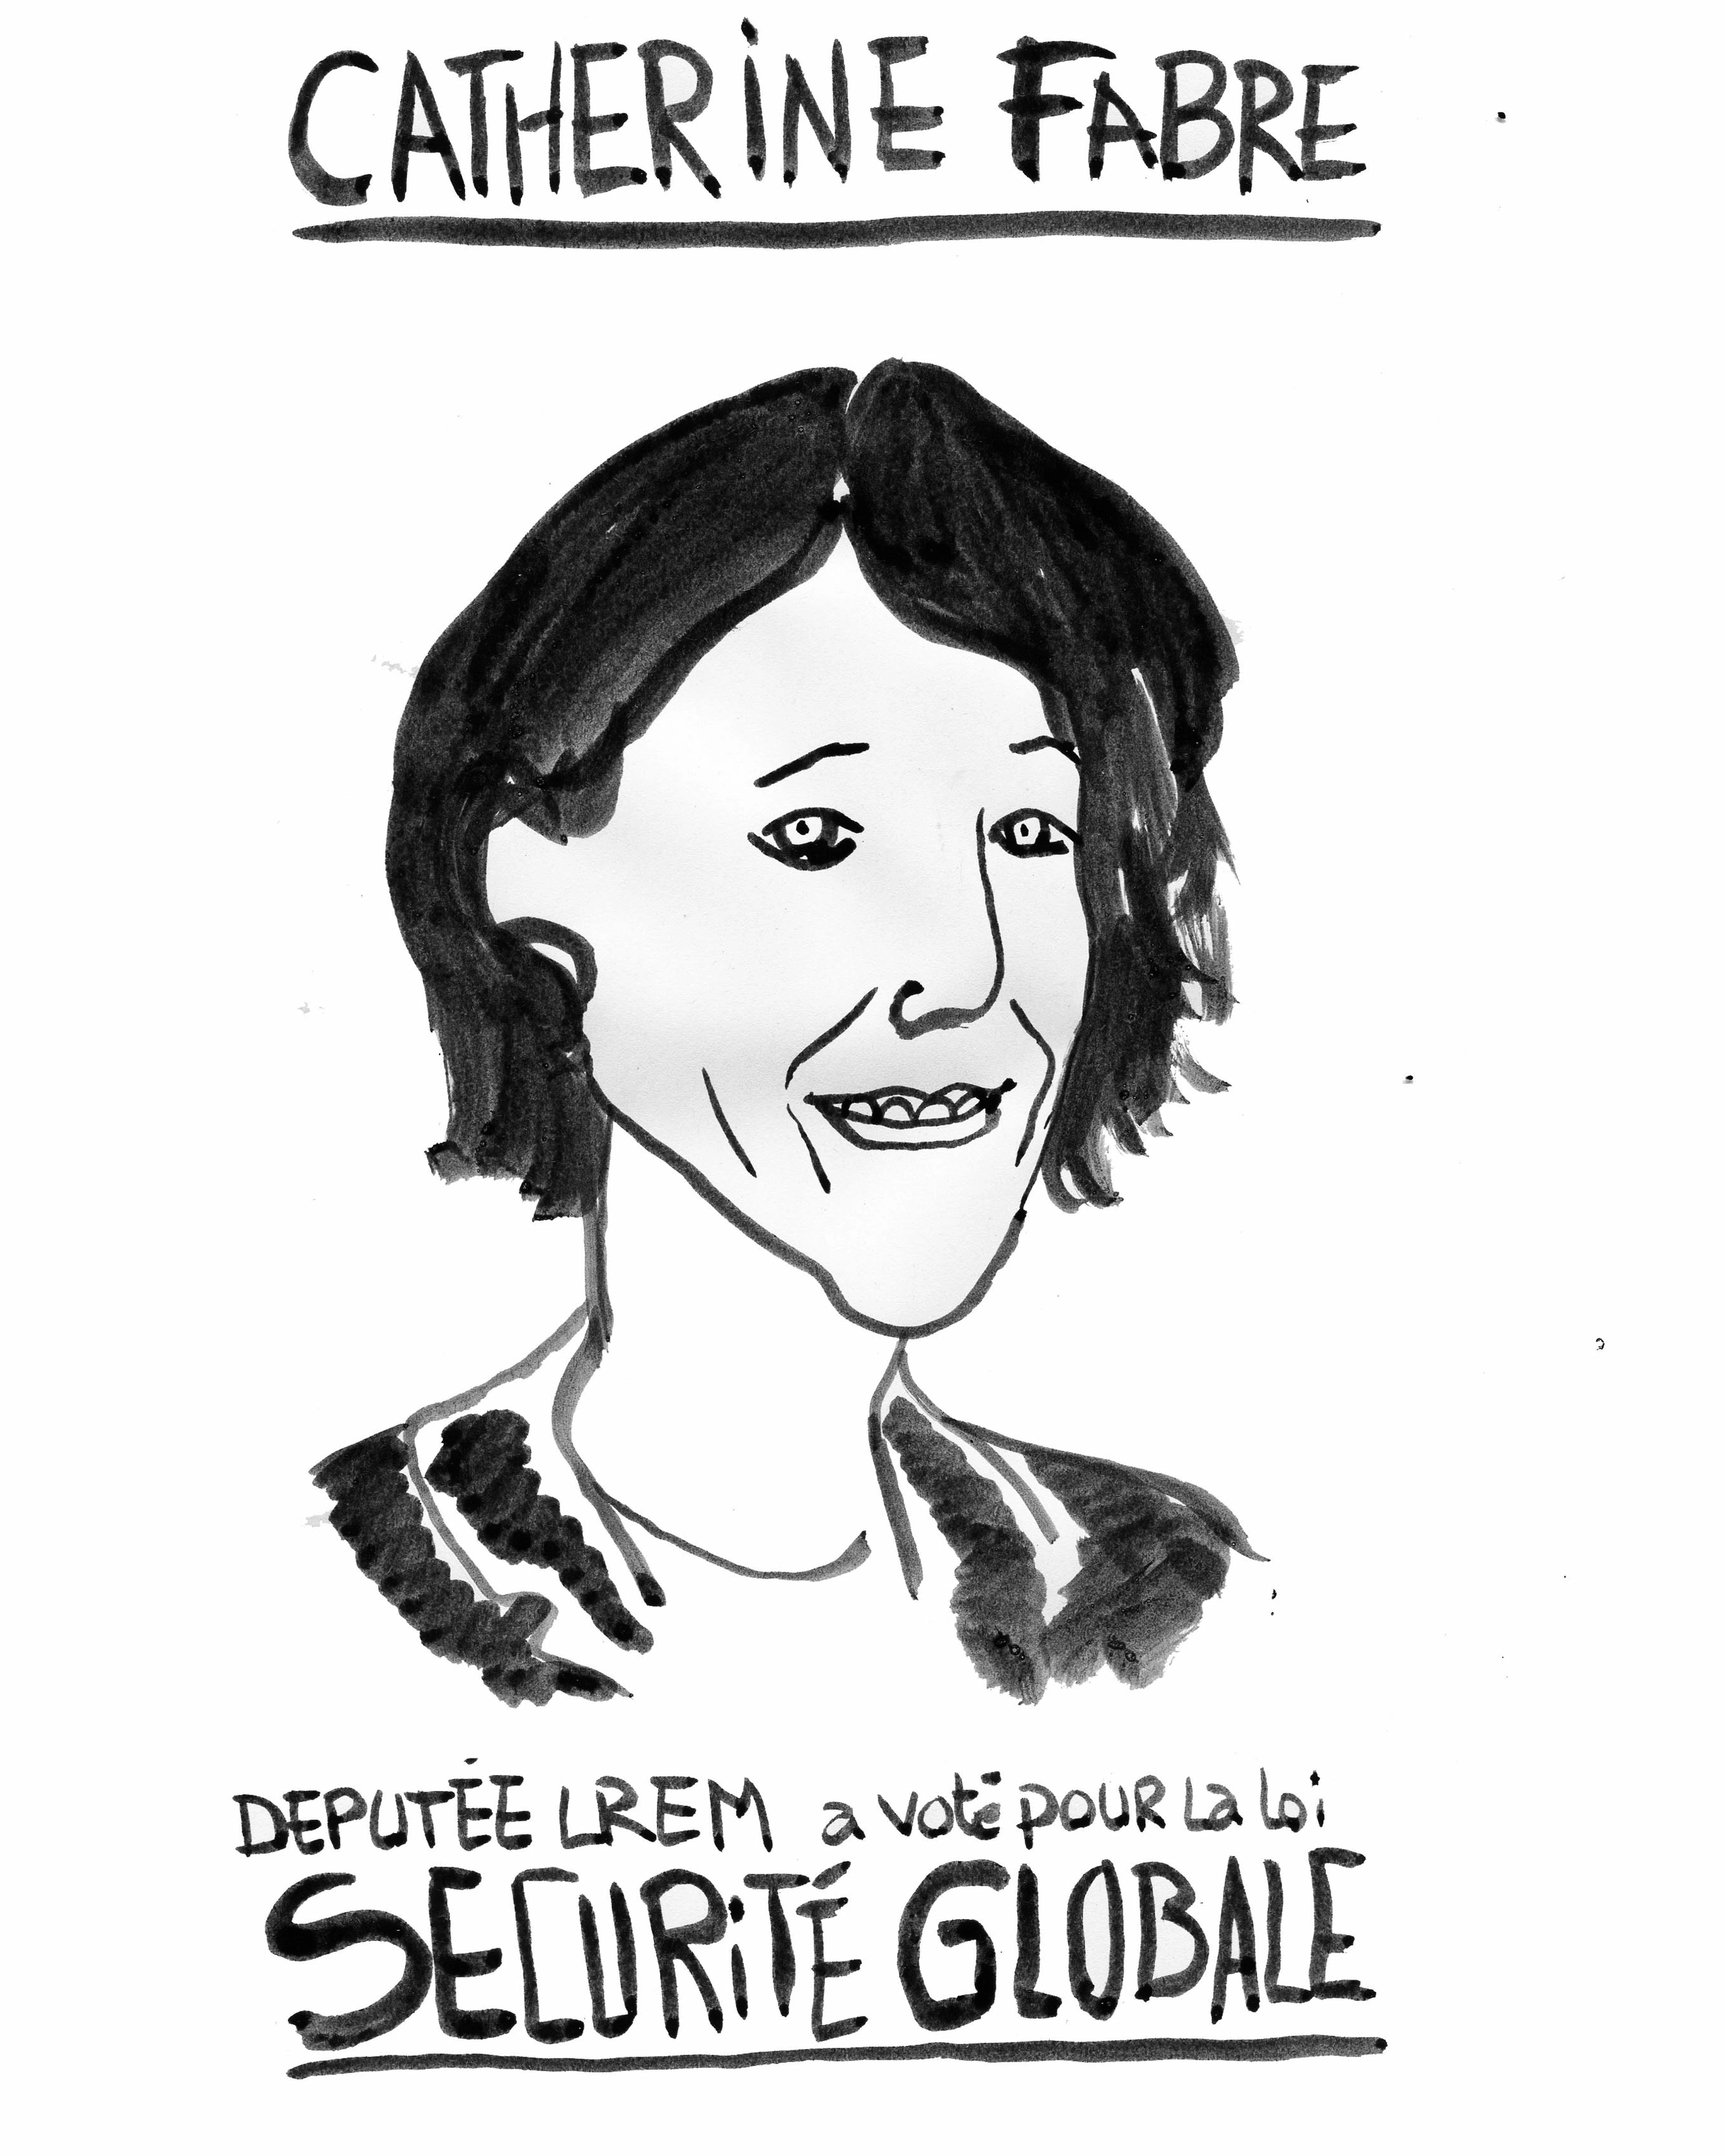 CATHERINE FABRE
DEPUTÉE LREM a voté pour la loi
SECURITÉ GLOBALE